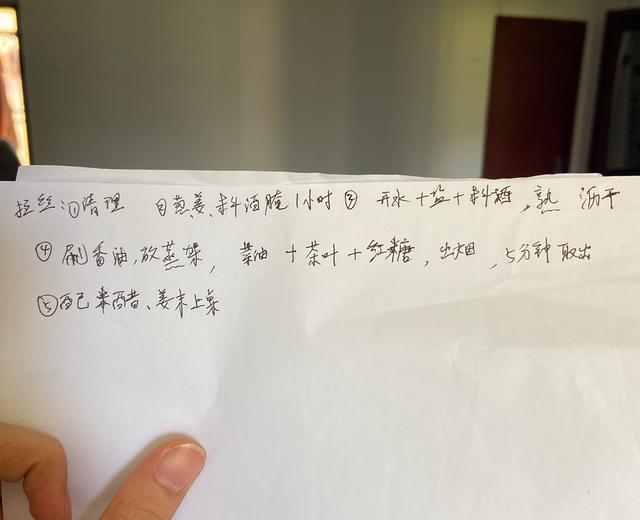 拉丝:①清理 ②葱姜、料酒腌1小时 ③ 开水+盐+料酒,熟 沥干
④ 刷香油,放蒸架, 菜油+茶叶+红糖,出烟,5分钟取出
⑤配米醋、姜末上桌